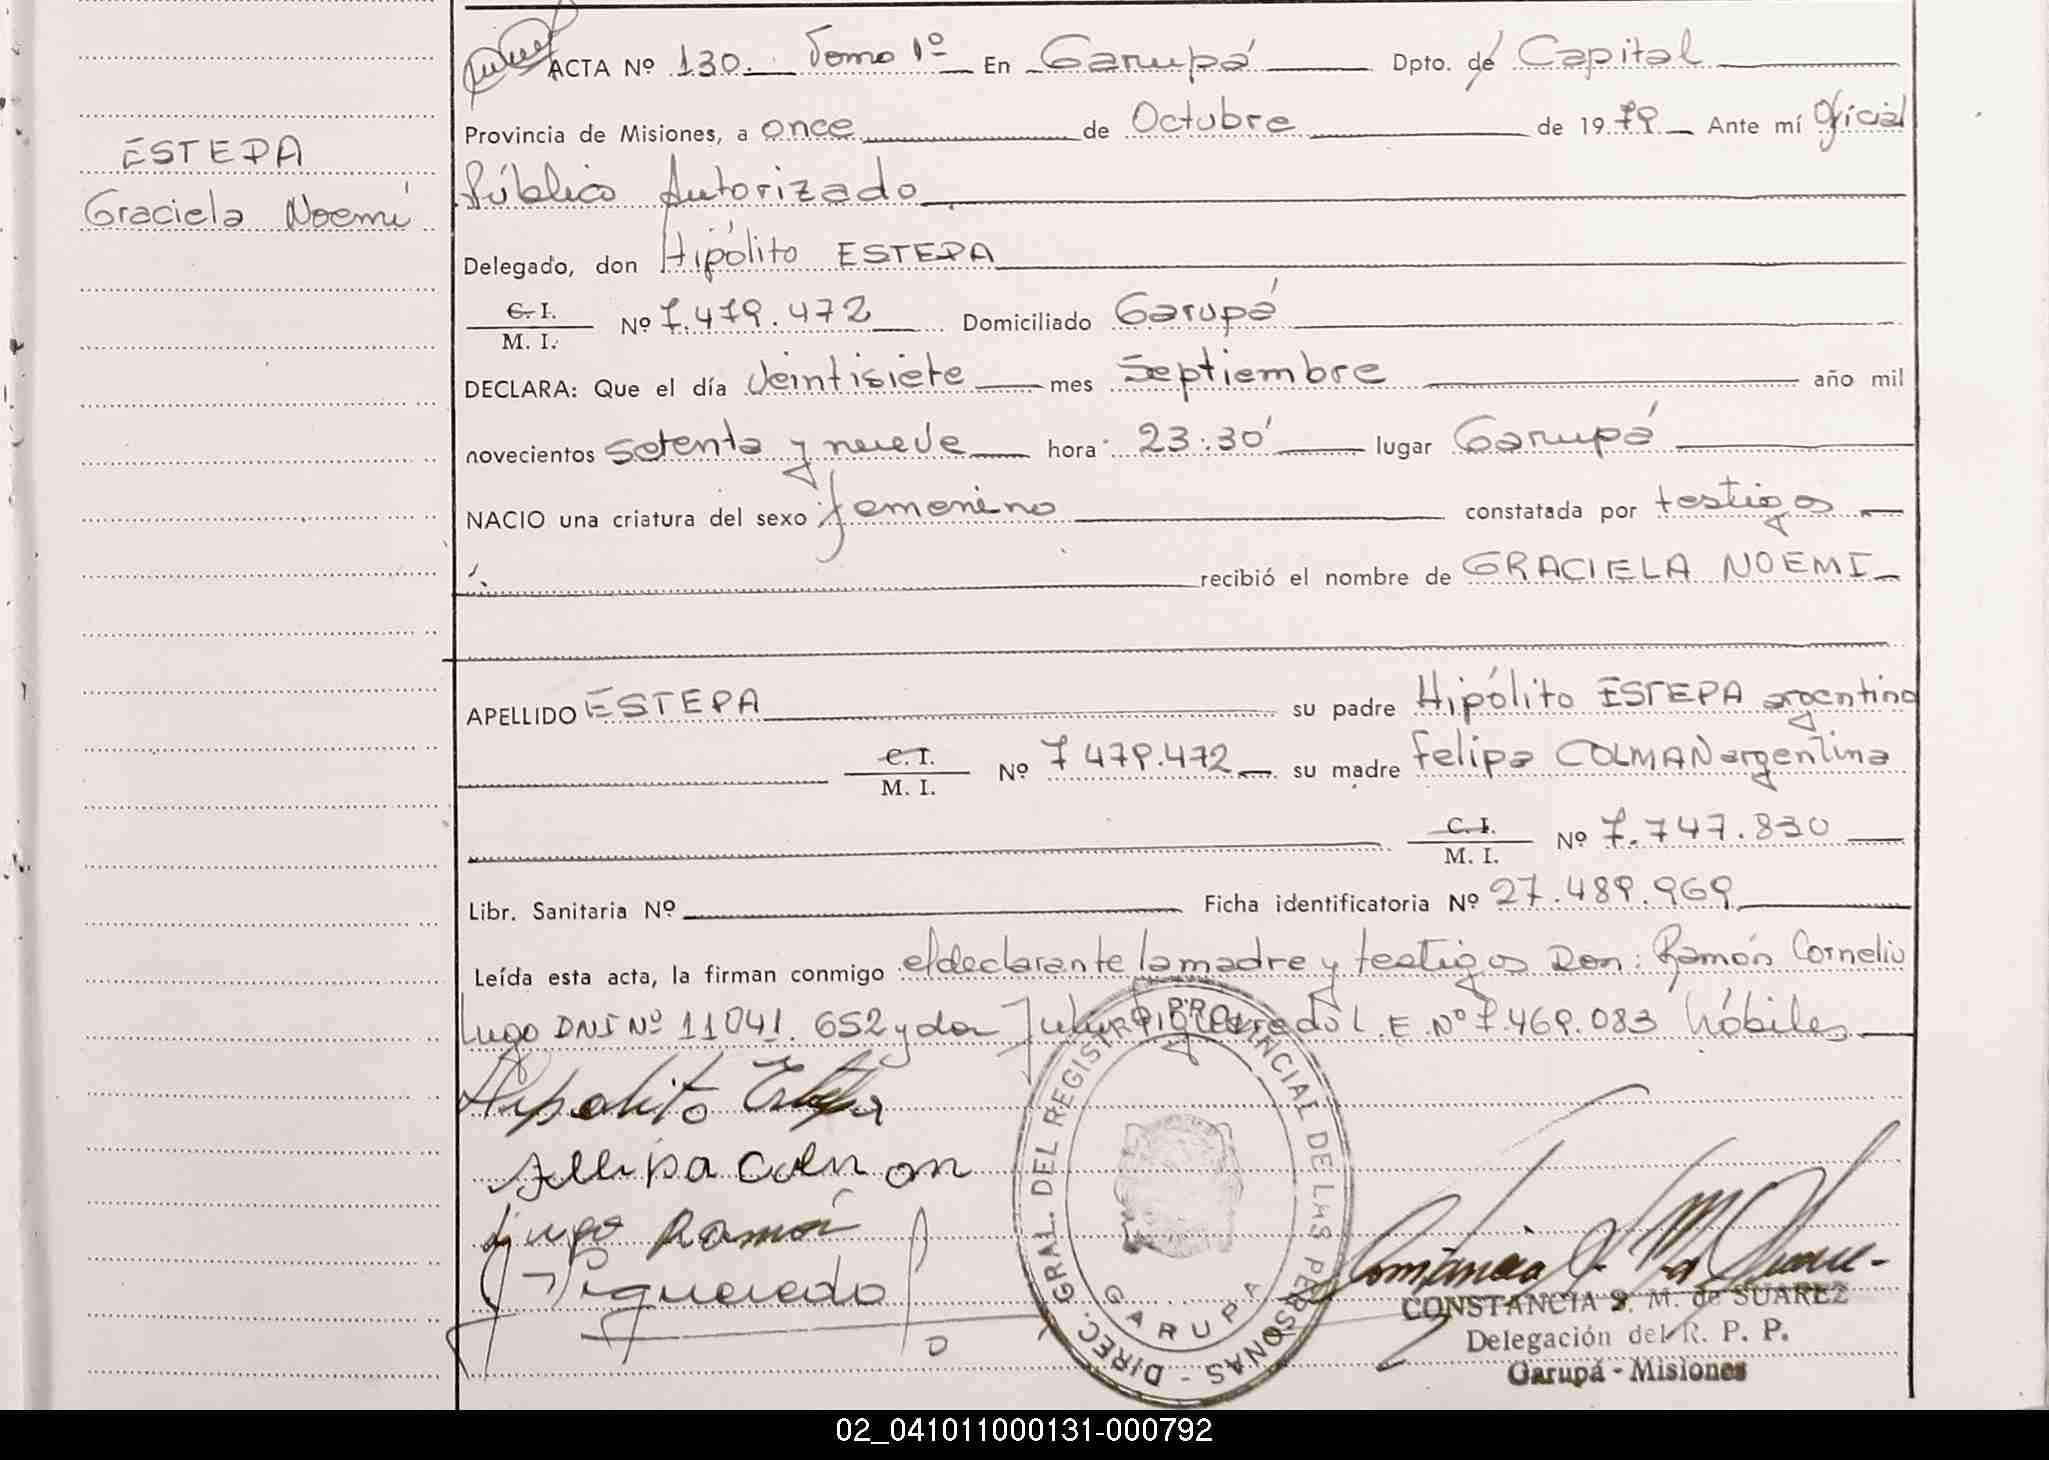 ESTEPA
Graciela Noemí
ACTA Nº 130. Tomo 1º En Garupá Dpto. de Capital
Provincia de Misiones, a once de Octubre de 1979 Ante mí Oficial
Público Autorizado
Delegado, don Hipólito ESTEPA
C. I.
M. I. Nº 7.479.472 Domiciliado Garupá
DECLARA: Que el día veintisiete mes Septiembre año mil
novecientos setenta y nueve hora 23:30' lugar Garupá
NACIO una criatura del sexo femenino constatada por testigos
recibió el nombre de GRACIELA NOEMI
APELLIDO ESTEPA su padre Hipólito ESTEPA argentino
C. I.
M. I. Nº 7479.472 su madre Felipa COLMAN argentina
C. I.
M. I. Nº 7.747.830
Libr. Sanitaria Nº Ficha identificatoria Nº 27.489.969
Leída esta acta, la firman conmigo el declarante la madre y testigos Don: Ramón Cornelio
Lugo DNI Nº 11041.652 y don Figueredo L.E. Nº 7.469.083 hábiles
Hipolito Estepa
Felipa Colman
Lugo Ramón
Figueredo
DIREC. GRAL. DEL REGISTRO PROVINCIAL DE LAS PERSONAS -
GARUPA
CONSTANCIA S. M. de SUAREZ
Delegación del R. P. P.
Garupá - Misiones
02_041011000131-000792